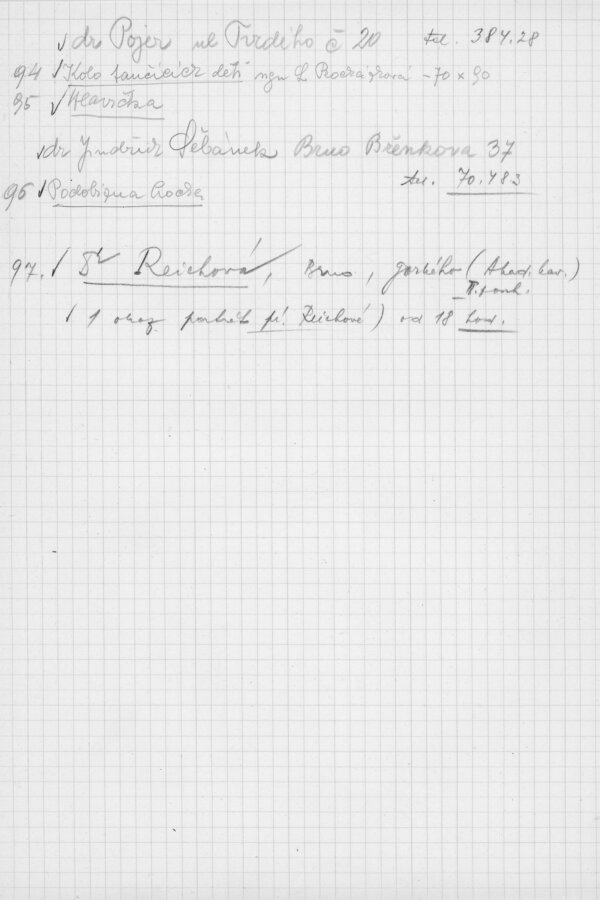 dr Pojer ul Tvrdého č 20 tel. 384.28
94 Kolo tančících dětí sign L 70 x 90
95 Hlavička
dr Jindřich Šebánek Brno Břenkova 37
tel. 70.483
96 Podobizna hocha
97. Dr Reichová, Brno, Gorkého (Akad. kav.)
II. posch.
1 obraz portrét pí. Reichové) od 18 hod.